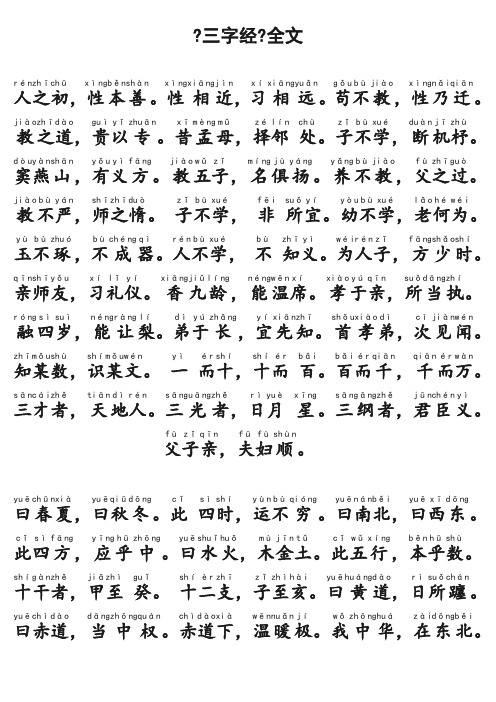 ?三字经?全文
rénzhīchū xìngběnshàn xìngxiāngjìn xíxiāngyuǎn gǒubùjiào xìngnǎiqiān
人之初，性本善。性相近，习相远。苟不教，性乃迁。
jiàozhīdào guìyǐzhuān xīmèngmǔ zélínchù zǐbùxué duànjīzhù
教之道，贵以专。昔孟母，择邻处。子不学，断机杼。
dòuyànshān yǒuyìfāng jiàowǔzǐ míngjùyáng yǎngbùjiào fùzhīguò
窦燕山，有义方。教五子，名俱扬。养不教，父之过。
jiàobùyán shīzhīduò zǐbùxué fēisuǒyí yòubùxué lǎohéwéi
教不严，师之惰。子不学，非所宜。幼不学，老何为。
yùbùzhuó bùchéngqì rénbùxué bùzhīyì wéirénzǐ fāngshǎoshí
玉不琢，不成器。人不学，不知义。为人子，方少时。
qīnshīyǒu xílǐyí xiāngjiǔlíng néngwēnxí xiàoyúqīn suǒdāngzhí
亲师友，习礼仪。香九龄，能温席。孝于亲，所当执。
róngsìsuì néngrànglí dìyúzhǎng yíxiānzhī shǒuxiàodì cìjiànwén
融四岁，能让梨。弟于长，宜先知。首孝弟，次见闻。
zhīmǒushù shímǒuwén yìérshí shíérbǎi bǎiérqiān qiānérwàn
知某数，识某文。一而十，十而百。百而千，千而万。
sāncáizhě tiāndìrén sānguāngzhě rìyuèxīng sāngāngzhě jūnchényì
三才者，天地人。三光者，日月星。三纲者，君臣义。
fùzǐqīn fūfùshùn
父子亲，夫妇顺。
yuēchūnxià yuēqiūdōng cǐsìshí yùnbùqióng yuēnánběi yuēxīdōng
曰春夏，曰秋冬。此四时，运不穷。曰南北，曰西东。
cǐsìfāng yìnghūzhōng yuēshuǐhuǒ mùjīntǔ cǐwǔxíng běnhūshù
此四方，应乎中。曰水火，木金土。此五行，本乎数。
shígànzhě jiǎzhìguǐ shíèrzhī zǐzhìhài yuēhuángdào rìsuǒchán
十干者，甲至癸。十二支，子至亥。曰黄道，日所躔。
yuēchìdào dāngzhōngquán chìdàoxià wēnnuǎnjí wǒzhōnghuá zàidōngběi
曰赤道，当中权。赤道下，温暖极。我中华，在东北。